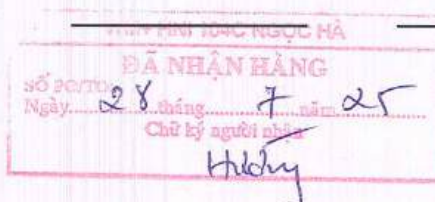 HNI 104C NGỌC HÀ
ĐÃ NHẬN HÀNG
SỐ PO/TO
Ngày 28 tháng 7 năm 25
Chữ ký người nhận
Hường